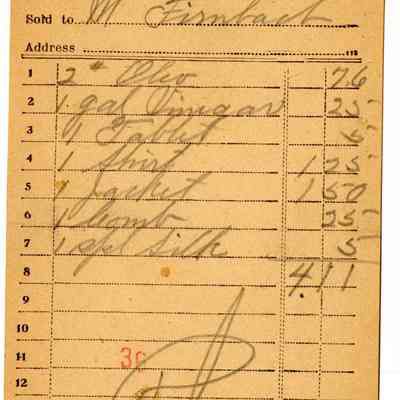 Sold to M Firnbach
Address 191
1 2# Oleo 76
2 1 gal Vinegar 25
3 1 Tablet 5
4 1 Shirt 1 25
5 1 Jacket 1 50
6 1 comb 25
7 1 spl Silk 5
8 4.11
9
10
11
12